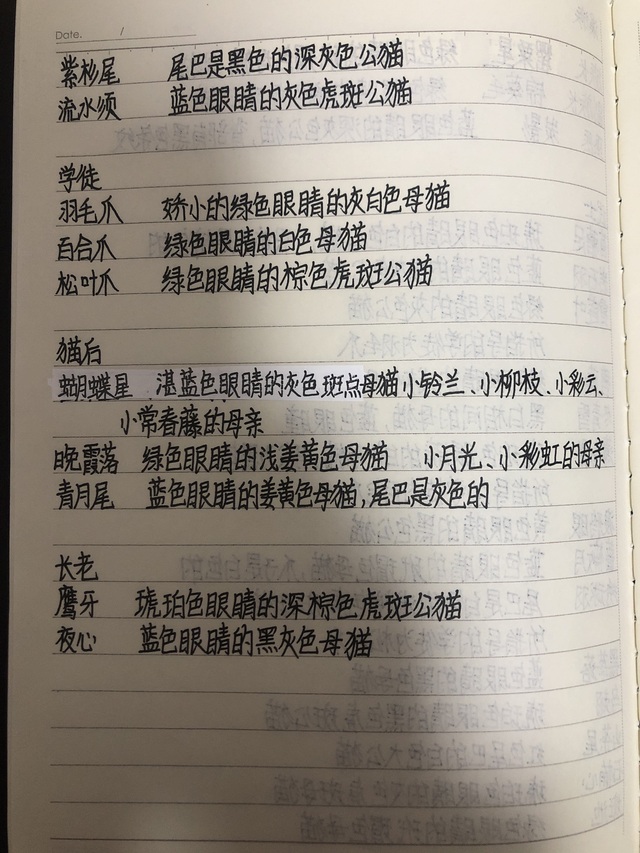 Date. /
紫杉尾 尾巴是黑色的深灰色公猫
流水须 蓝色眼睛的灰色虎斑公猫
学徒
羽毛爪 娇小的绿色眼睛的灰白色母猫
百合爪 绿色眼睛的白色母猫
松叶爪 绿色眼睛的棕色虎斑公猫
猫后
蝴蝶星 湛蓝色眼睛的灰色斑点母猫小铃兰、小柳枝、小彩云、
小常春藤的母亲
晚霞落 绿色眼睛的浅姜黄色母猫 小月光、小彩虹的母亲
青月尾 蓝色眼睛的姜黄色母猫,尾巴是灰色的
长老
鹰牙 琥珀色眼睛的深棕色虎斑公猫
夜心 蓝色眼睛的黑灰色母猫